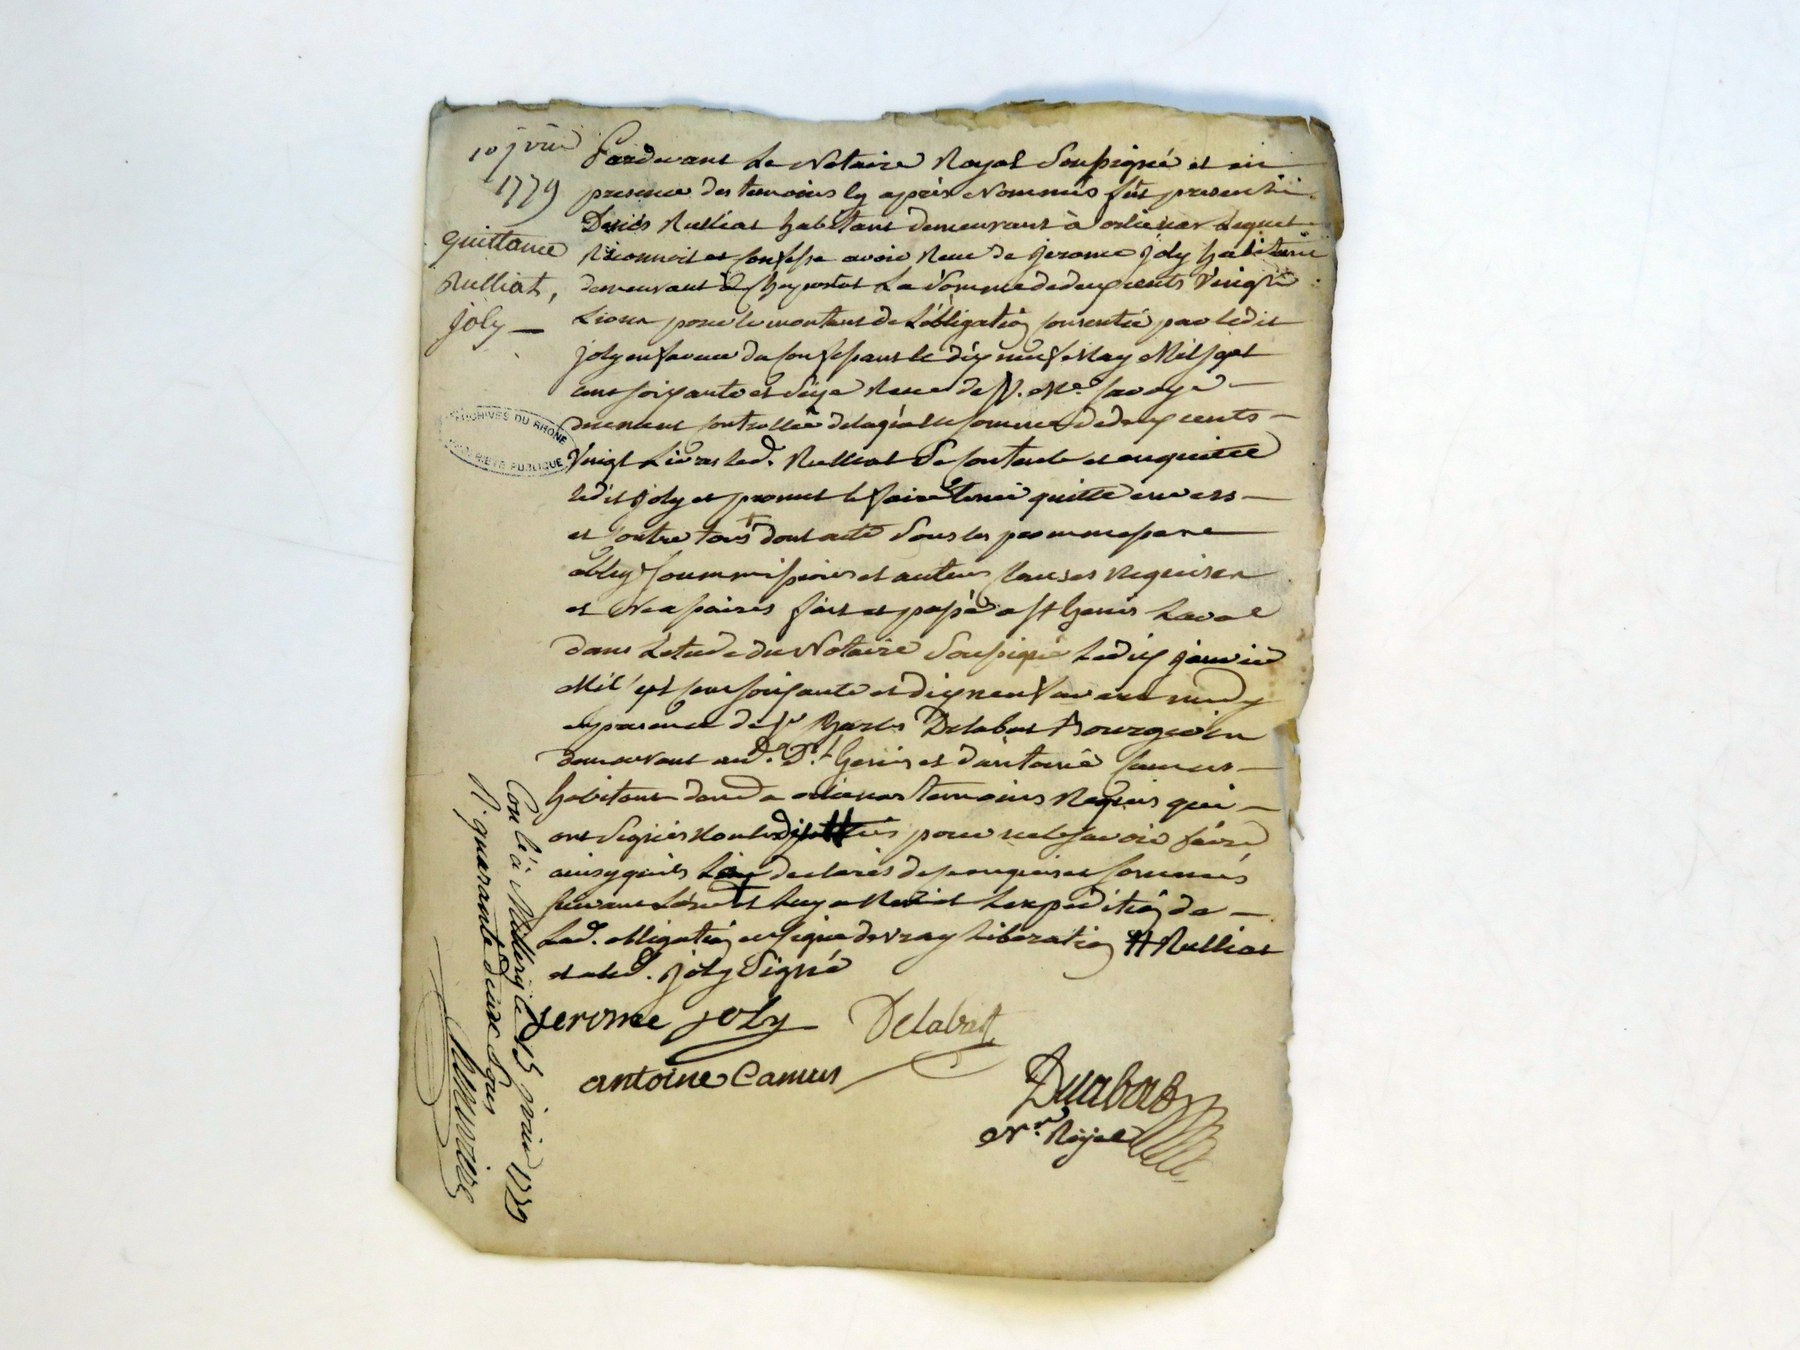 10 jvier
1779
quittance
Rulliat,
joly —
Pardevant Le Notaire Royal Soussigné et en
presence des temoins cy après Nommés fût present sr
Denis Rulliat habitant demeurant à orlienas Lequel
Reconnoit et confesse avoir Reçu de jerome joly habitant
demeurant à Chaponost La Somme de deux cents Vingt
Livres pour le montant de L'obligation consentie par ledit
joly en faveur du confessant le dix neuf May Mil sept
cent soixante et seize Reçue de Me
duement controllée de laquelle somme de deux cents —
Vingt Livres led. Rulliat Se contente et en quitte
ledit joly et promet le faire tenir quitte envers —
et contre tous dont acte Sous les promesses
oblig. soummissions et autres clauses Requises
et Necessaires fait et passé a st Genis Laval
dans L'etude du Notaire Soussigné Le dix janvier
Mil sept cent soixante et dix neuf avant midy
en presence de sr Delabat Bourgeois
demeurant aud. St Genis et d'antoine camus —
habitant dud. orlienas temoins Requis qui —
ont Signés Non pour ne le savoir faire
ainsy qu'ils declarés de ce enquis et sommés
suivant L'ordt et L'expedition de —
Lad. obligation en signe de vray Liberation # Rulliat
et a led. joly Signé
Jerome joly
Delabat
antoine Camus
Duabad
Nre Royal
Conlé à Millery le 15 janvier 1779
R: quarante deux Sous
ARCHIVES DU RHONE
PROPRIÉTÉ PUBLIQUE